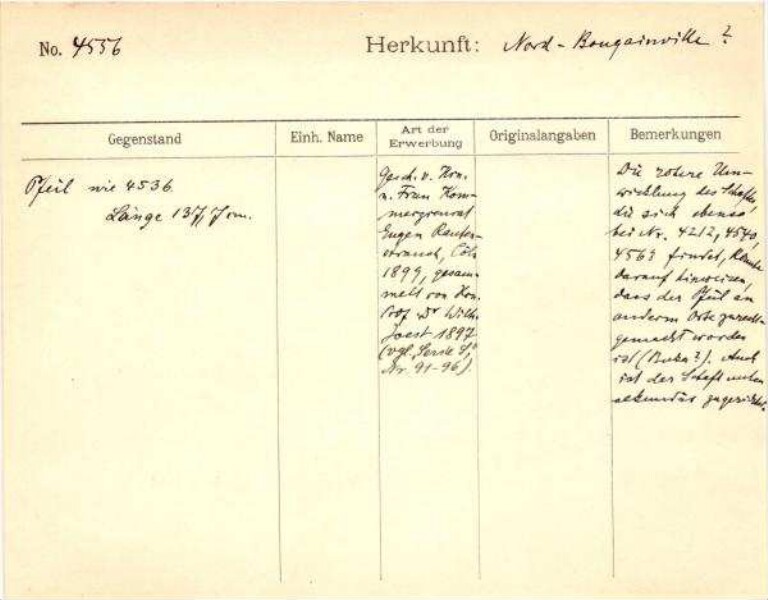 No. 4556
Herkunft: Nord-Bougainville?
Gegenstand
Einh. Name
Art der
Erwerbung
Originalangaben
Bemerkungen
Pfeil wie 4536.
Länge 137,7 cm.
Gesch. v. Hrn.
u. Frau Kom-
merzienrat
Eugen Rauten-
strauch, Cöln
1899, gesam-
melt von Hrn.
Prof Dr Wilh.
Joest 1897
(vgl. Serie S,
Nr. 91-96).
Die rotere Um-
wicklung des Schaftes,
die sich ebenso
bei Nr. 4212, 4540,
4563 findet, könnte
darauf hinweisen,
dass der Pfeil an
anderem Orte zurecht-
gemacht worden
ist (Buka?). Auch
ist der Schaft unten
sekundär zugerichtet.